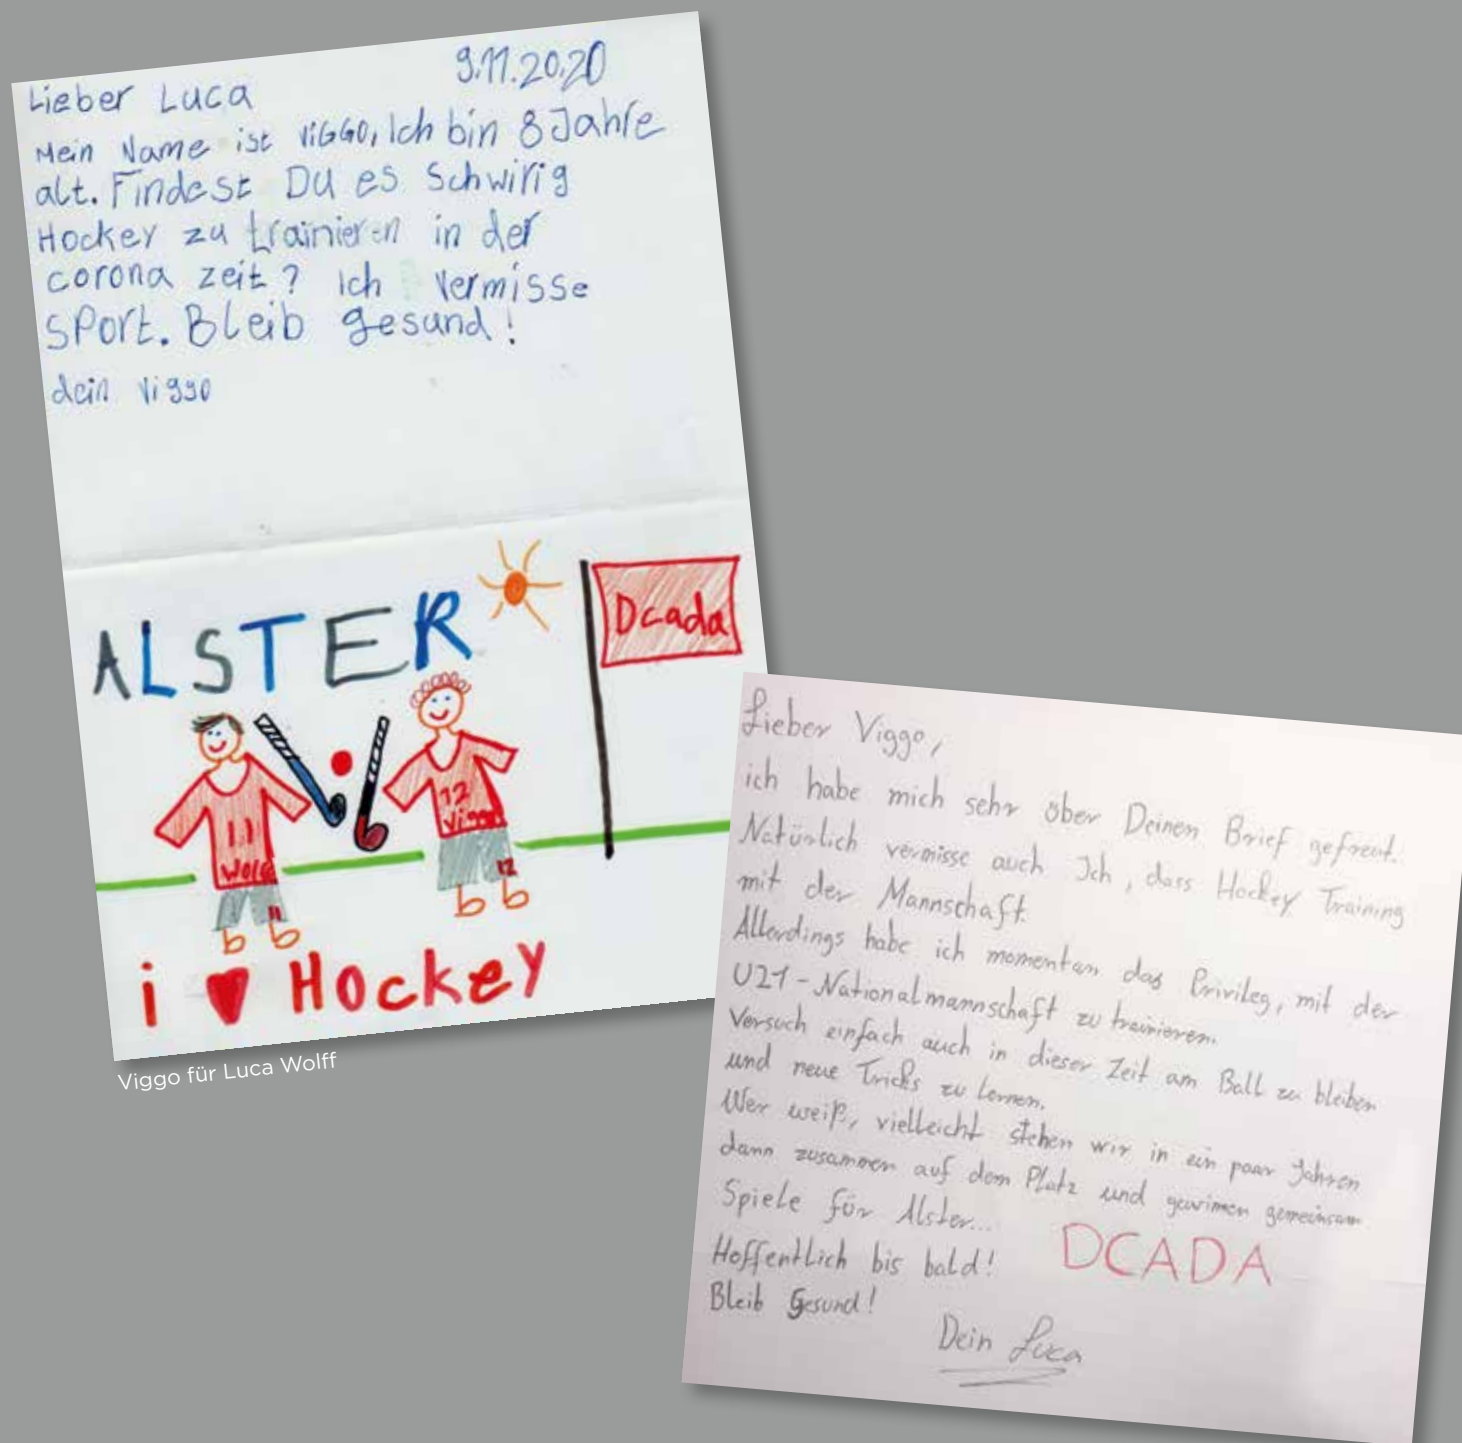 9.11.2020
Lieber Luca
Mein Name ist ViGGO, Ich bin 8 Jahre
alt. Findest Du es Schwirig
Hockey zu trainieren in der
corona zeit? Ich vermisse
SPort. Bleib gesund!
dein Viggo
ALSTER
Dcada
11
Wolff
12
Viggo
11
12
i ♥ Hockey
Viggo für Luca Wolff
Lieber Viggo,
ich habe mich sehr über Deinen Brief gefreut.
Natürlich vermisse auch Ich, dass Hockey Training
mit der Mannschaft.
Allerdings habe ich momentan das Privileg, mit der
U21-Nationalmannschaft zu trainieren.
Versuch einfach auch in dieser Zeit am Ball zu bleiben
und neue Tricks zu lernen.
Wer weiß, vielleicht stehen wir in ein paar Jahren
dann zusammen auf dem Platz und gewinnen gemeinsam
Spiele für Alster...
Hoffentlich bis bald!
DCADA
Bleib Gesund!
Dein Luca